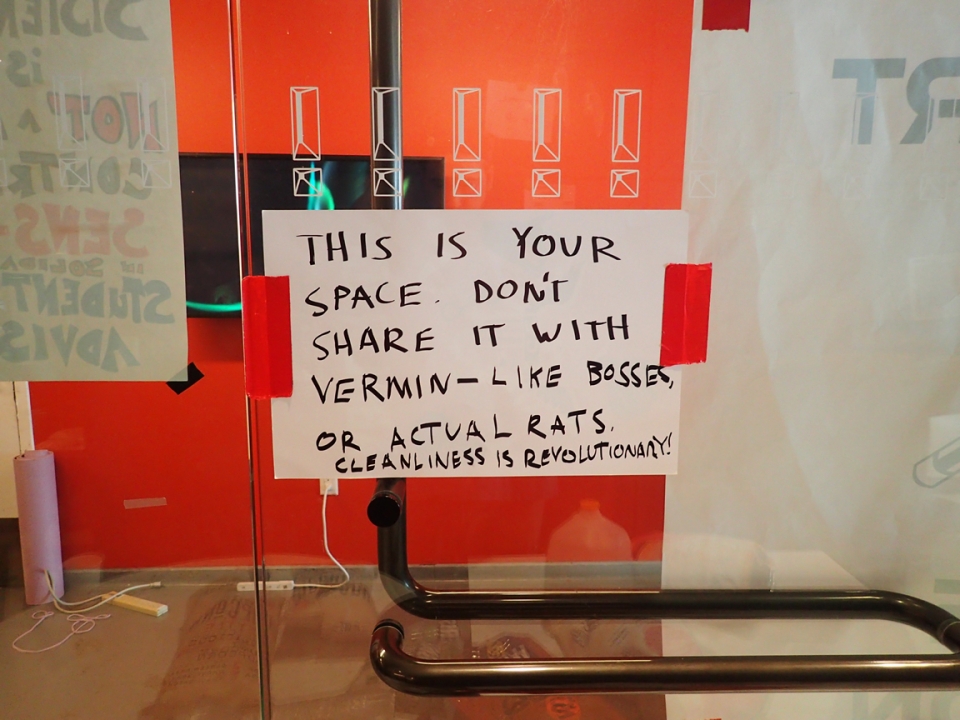 THIS IS YOUR
SPACE. DON'T
SHARE IT WITH
VERMIN-LIKE BOSSES,
OR ACTUAL RATS.
CLEANLINESS IS REVOLUTIONARY!
is
NOT A
STUDENT